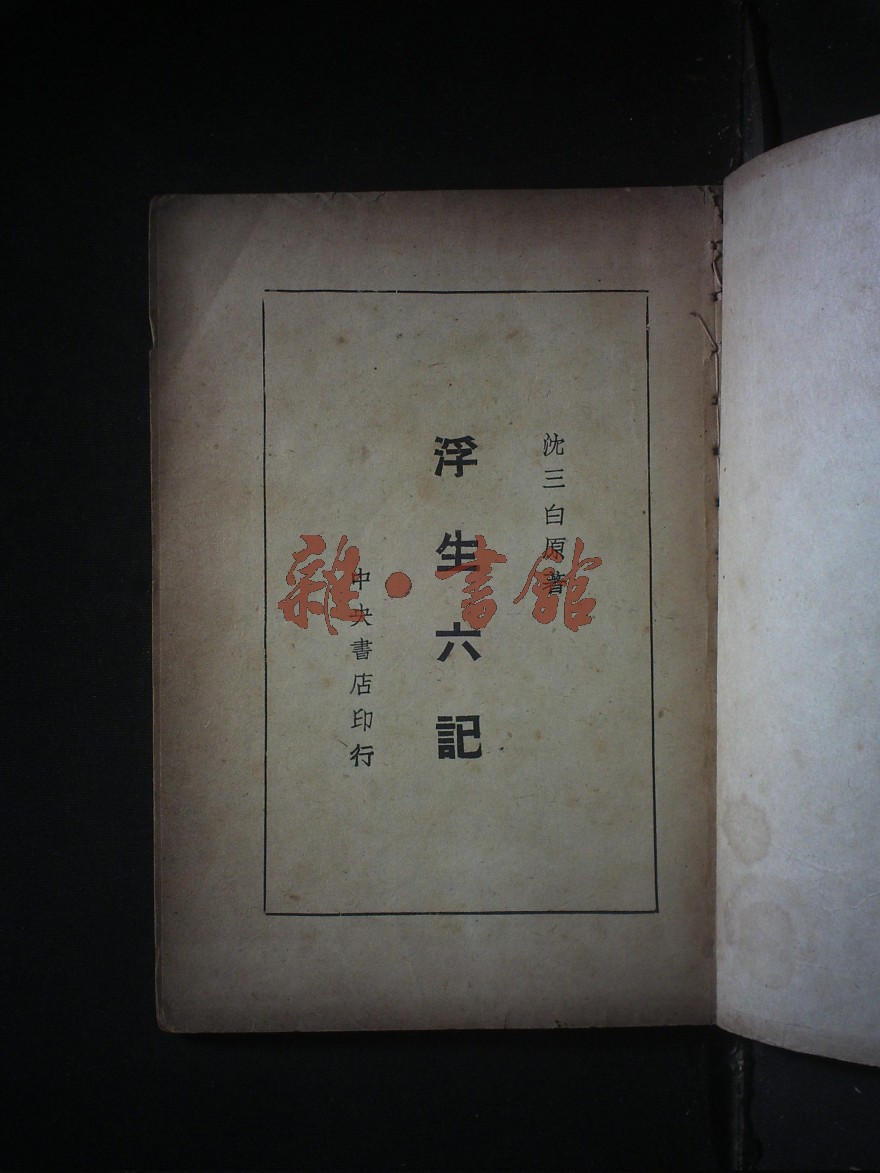 沈三白原著
浮生六記
中央書店印行
雜·書館